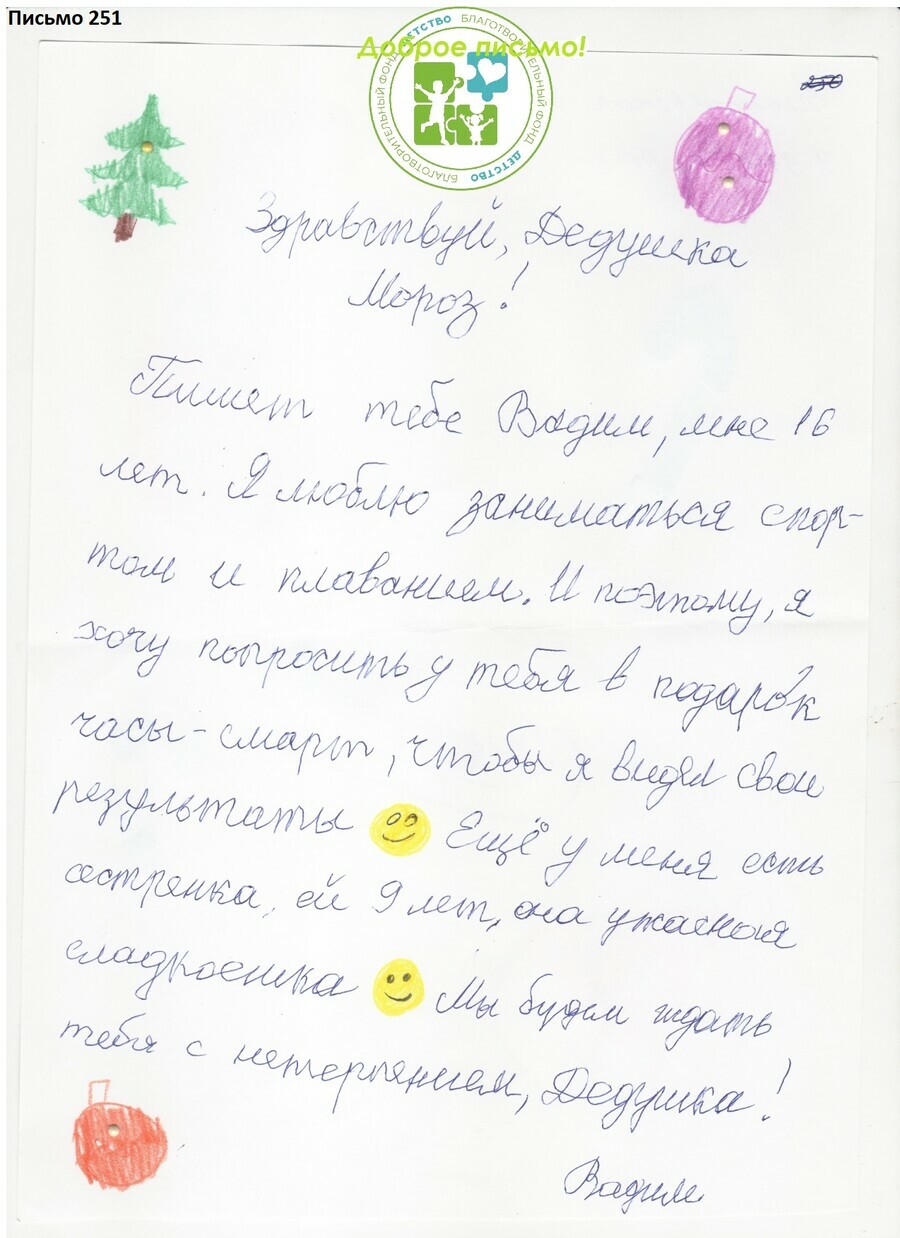 Письмо 251
Доброе письмо!
БЛАГОТВОРИТЕЛЬНЫЙ ФОНД ДЕТСТВО БЛАГОТВОРИТЕЛЬНЫЙ ФОНД ДЕТСТВО
250
Здравствуй, Дедушка
Мороз!
Пишет тебе Вадим, мне 16
лет. Я люблю заниматься спор-
том и плаванием. И поэтому, я
хочу попросить у тебя в подарок
часы-смарт, чтобы я видел свои
результаты
Ещё у меня есть
сестренка, ей 9 лет, она ужасная
сладкоежка
Мы будем ждать
тебя с нетерпением, Дедушка!
Вадим